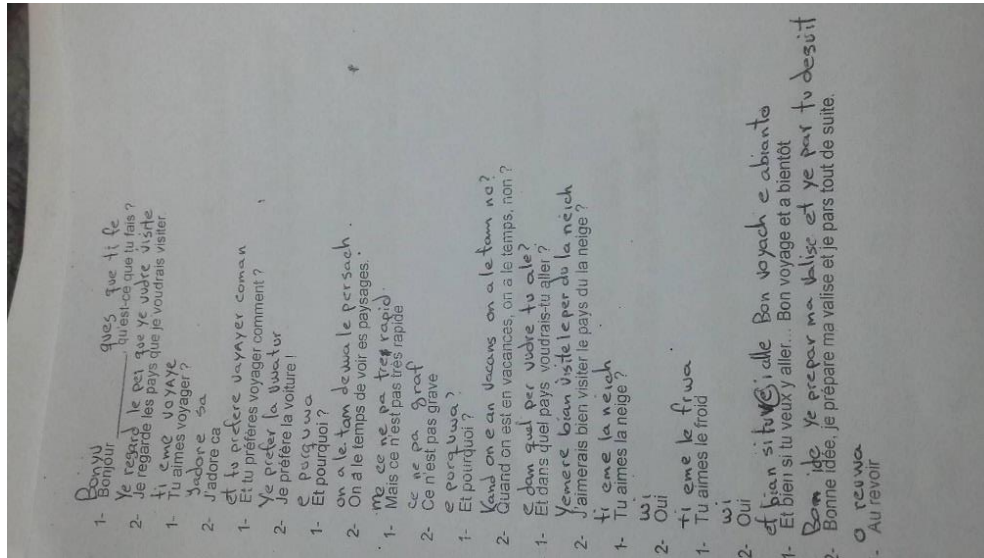 Bonyu ques que ti fe
1- Bonjour ________, qu'est-ce que tu fais ?
Ye regard le pei que ye vudre visite
2- Je regarde les pays que je voudrais visiter
ti eme voyaye
1- Tu aimes voyager ?
yadore sa
2- J'adore ca
et tu prefere vayayer coman
1- Et tu préfères voyager comment ?
Ye prefer la vwatur
2- Je préfère la voiture !
e purquwa
1- Et pourquoi ?
on a le tam dewa le persach.
2- On a le temps de voir es paysages.
me ce ne pa tres rapid.
1- Mais ce n'est pas très rapide
ce ne pa graf
2- Ce n'est pas grave
e porquwa?
1- Et pourquoi ?
Kand on e an vacans on a le tam no?
2- Quand on est en vacances, on a le temps, non ?
e dam quel per vudre tu ale?
1- Et dans quel pays voudrais-tu aller ?
Yemere bian visite le per du la neich
2- J'aimerais bien visiter le pays du la neige ?
ti eme la neich
1- Tu aimes la neige ?
wi
2- Oui
ti eme le frwa
1- Tu aimes le froid
wi
2- Oui
et bian si tu ve i alle Bon voyach e abianto
1- Et bien si tu veux y aller... Bon voyage et a bientôt
Bom ide ye prepar ma valise et ye par tu desuit
2- Bonne idée, je prépare ma valise et je pars tout de suite.
o revwa
Au revoir